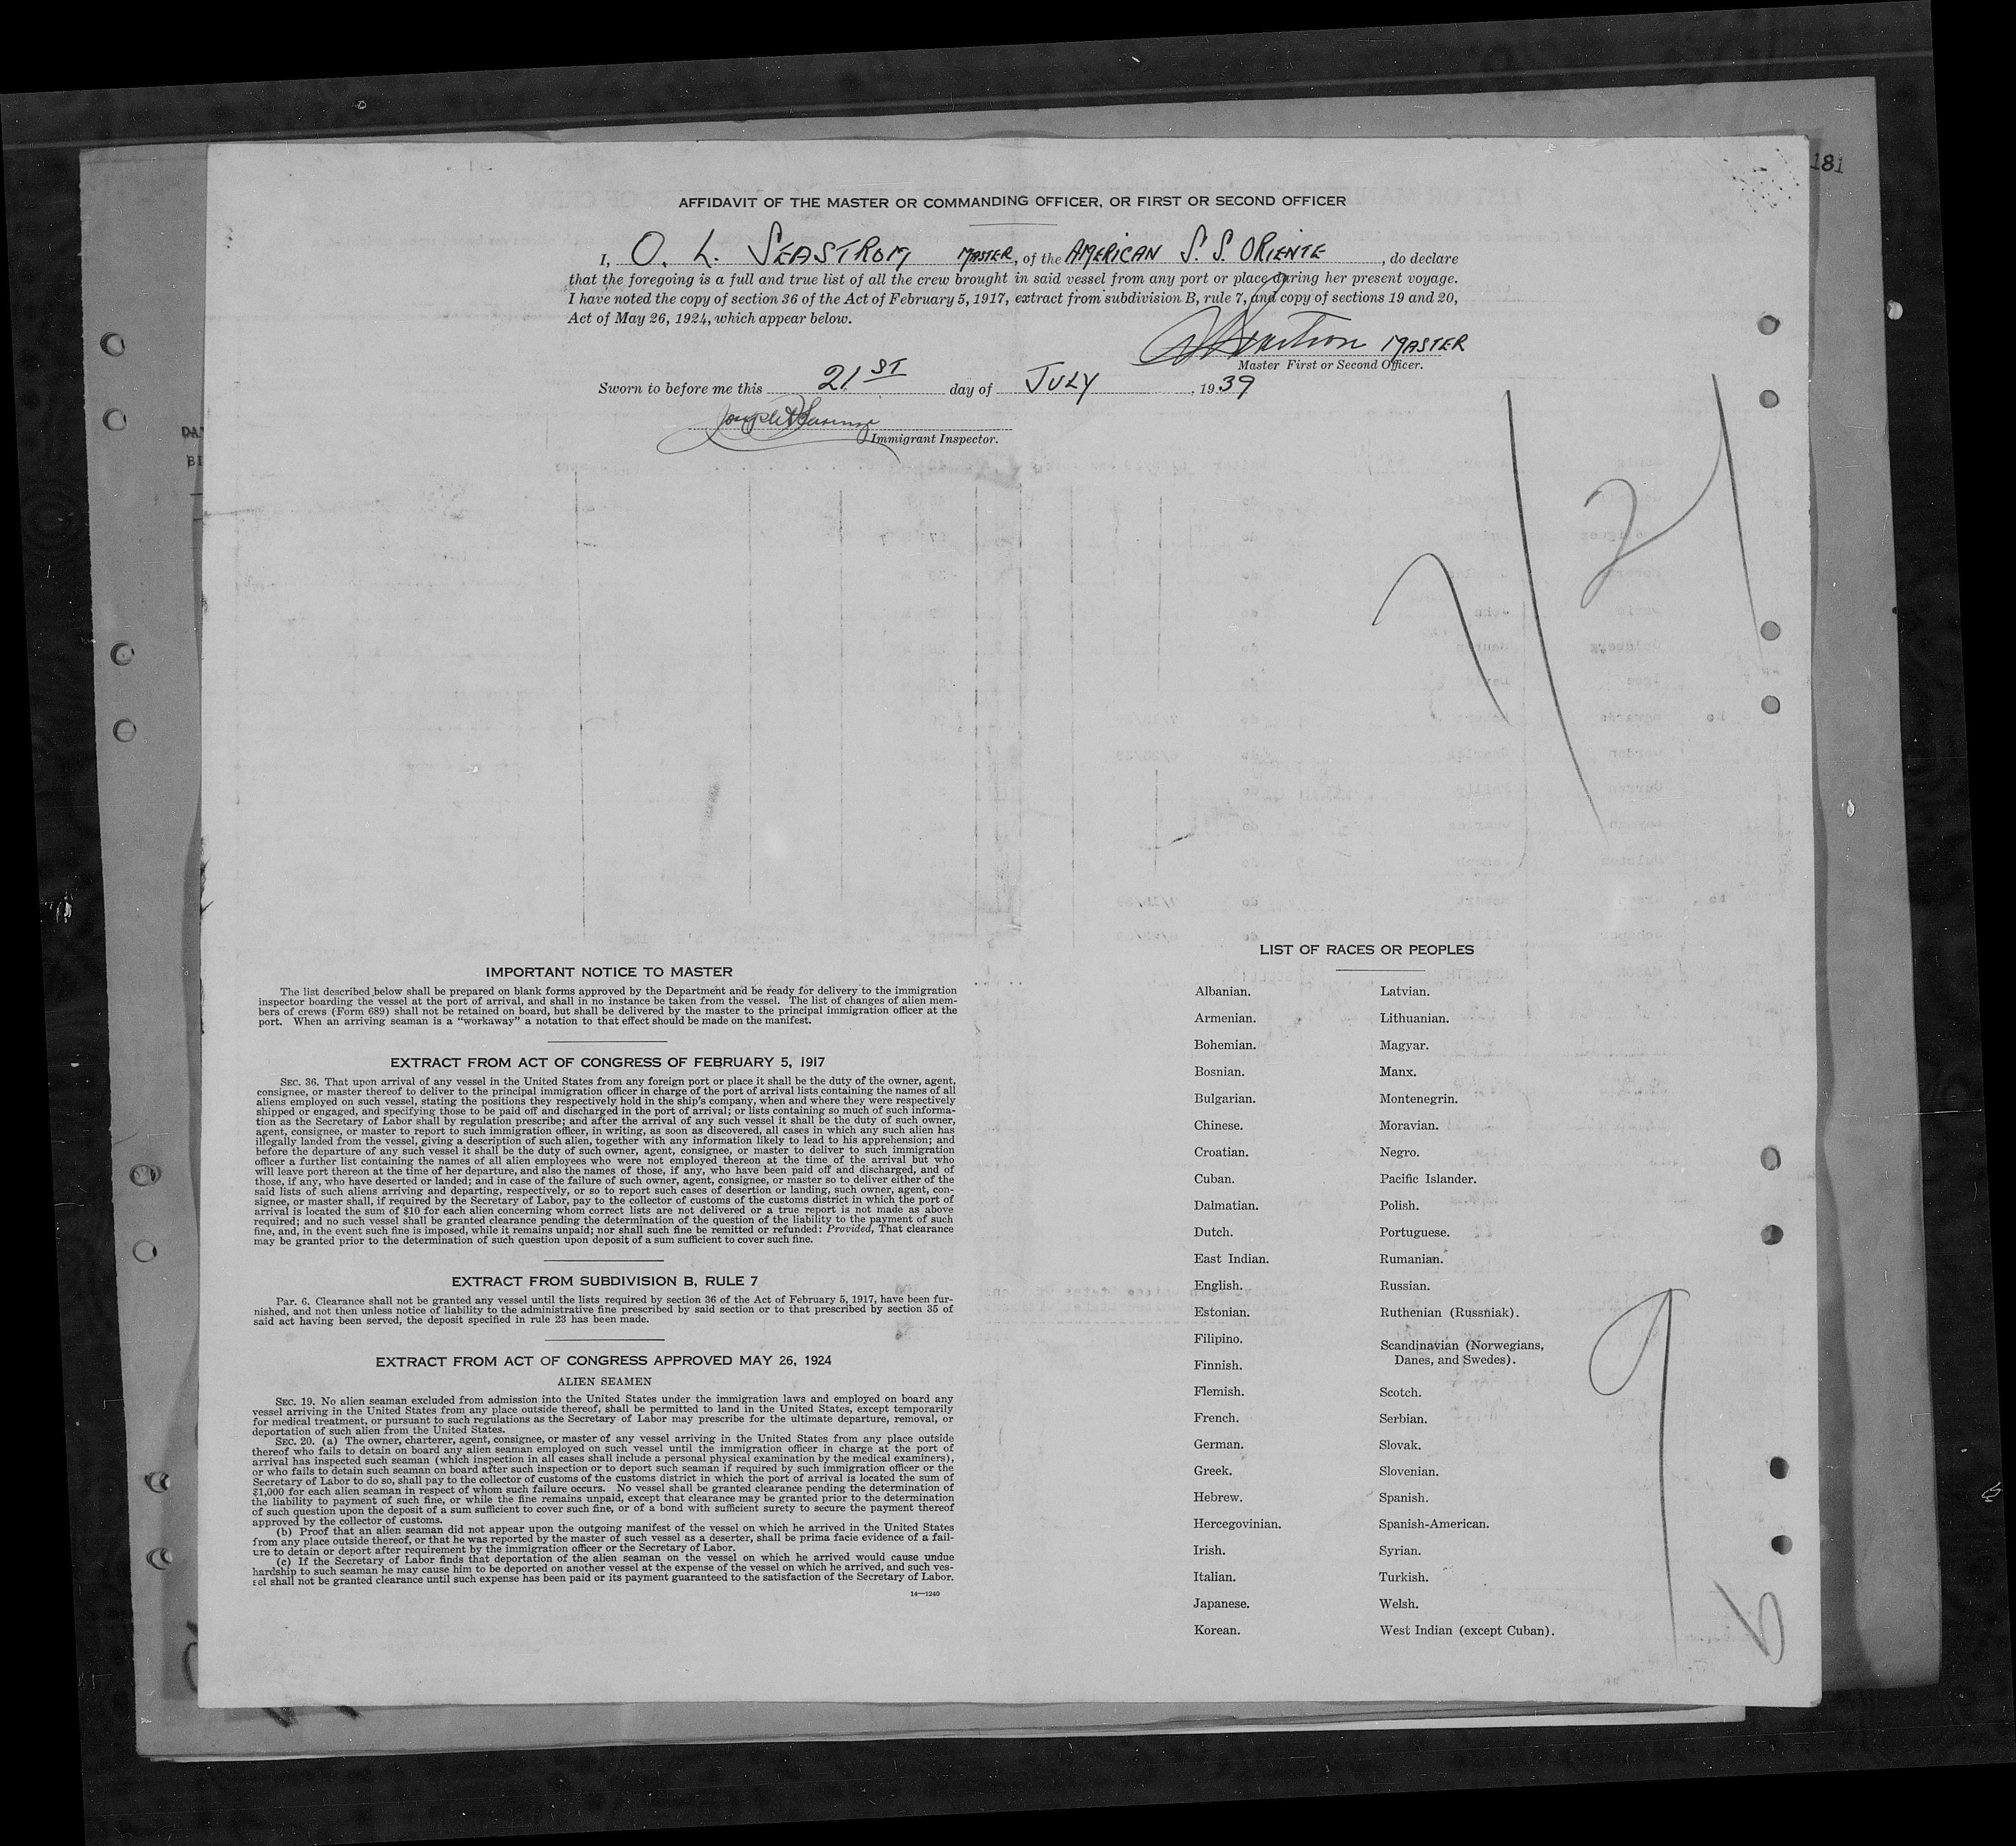 181
AFFIDAVIT OF THE MASTER OR COMMANDING OFFICER, OR FIRST OR SECOND OFFICER
I, O. L. SEASTROM MASTER, of the AMERICAN S. S. ORIENTE, do declare
that the foregoing is a full and true list of all the crew brought in said vessel from any port or place during her present voyage.
I have noted the copy of section 36 of the Act of February 5, 1917, extract from subdivision B, rule 7, and copy of sections 19 and 20,
Act of May 26, 1924, which appear below.
MASTER
Master First or Second Officer.
Sworn to before me this 21ST day of JULY, 1939
Immigrant Inspector.
7/21
IMPORTANT NOTICE TO MASTER
The list described below shall be prepared on blank forms approved by the Department and be ready for delivery to the immigration
inspector boarding the vessel at the port of arrival, and shall in no instance be taken from the vessel. The list of changes of alien mem-
bers of crews (Form 689) shall not be retained on board, but shall be delivered by the master to the principal immigration officer at the
port. When an arriving seaman is a "workaway" a notation to that effect should be made on the manifest.
EXTRACT FROM ACT OF CONGRESS OF FEBRUARY 5, 1917
SEC. 36. That upon arrival of any vessel in the United States from any foreign port or place it shall be the duty of the owner, agent,
consignee, or master thereof to deliver to the principal immigration officer in charge of the port of arrival lists containing the names of all
aliens employed on such vessel, stating the positions they respectively hold in the ship's company, when and where they were respectively
shipped or engaged, and specifying those to be paid off and discharged in the port of arrival; or lists containing so much of such informa-
tion as the Secretary of Labor shall by regulation prescribe; and after the arrival of any such vessel it shall be the duty of such owner,
agent, consignee, or master to report to such immigration officer, in writing, as soon as discovered, all cases in which any such alien has
illegally landed from the vessel, giving a description of such alien, together with any information likely to lead to his apprehension; and
before the departure of any such vessel it shall be the duty of such owner, agent, consignee, or master to deliver to such immigration
officer a further list containing the names of all alien employees who were not employed thereon at the time of the arrival but who
will leave port thereon at the time of her departure, and also the names of those, if any, who have been paid off and discharged, and of
those, if any, who have deserted or landed; and in case of the failure of such owner, agent, consignee, or master so to deliver either of the
said lists of such aliens arriving and departing, respectively, or so to report such cases of desertion or landing, such owner, agent, con-
signee, or master shall, if required by the Secretary of Labor, pay to the collector of customs of the customs district in which the port of
arrival is located the sum of $10 for each alien concerning whom correct lists are not delivered or a true report is not made as above
required; and no such vessel shall be granted clearance pending the determination of the question of the liability to the payment of such
fine, and, in the event such fine is imposed, while it remains unpaid; nor shall such fine be remitted or refunded: Provided, That clearance
may be granted prior to the determination of such question upon deposit of a sum sufficient to cover such fine.
EXTRACT FROM SUBDIVISION B, RULE 7
Par. 6. Clearance shall not be granted any vessel until the lists required by section 36 of the Act of February 5, 1917, have been fur-
nished, and not then unless notice of liability to the administrative fine prescribed by said section or to that prescribed by section 35 of
said act having been served, the deposit specified in rule 23 has been made.
EXTRACT FROM ACT OF CONGRESS APPROVED MAY 26, 1924
ALIEN SEAMEN
SEC. 19. No alien seaman excluded from admission into the United States under the immigration laws and employed on board any
vessel arriving in the United States from any place outside thereof, shall be permitted to land in the United States, except temporarily
for medical treatment, or pursuant to such regulations as the Secretary of Labor may prescribe for the ultimate departure, removal, or
deportation of such alien from the United States.
SEC. 20. (a) The owner, charterer, agent, consignee, or master of any vessel arriving in the United States from any place outside
thereof who fails to detain on board any alien seaman employed on such vessel until the immigration officer in charge at the port of
arrival has inspected such seaman (which inspection in all cases shall include a personal physical examination by the medical examiners),
or who fails to detain such seaman on board after such inspection or to deport such seaman if required by such immigration officer or the
Secretary of Labor to do so, shall pay to the collector of customs of the customs district in which the port of arrival is located the sum of
$1,000 for each alien seaman in respect of whom such failure occurs. No vessel shall be granted clearance pending the determination of
the liability to payment of such fine, or while the fine remains unpaid, except that clearance may be granted prior to the determination
of such question upon the deposit of a sum sufficient to cover such fine, or of a bond with sufficient surety to secure the payment thereof
approved by the collector of customs.
(b) Proof that an alien seaman did not appear upon the outgoing manifest of the vessel on which he arrived in the United States
from any place outside thereof, or that he was reported by the master of such vessel as a deserter, shall be prima facie evidence of a fail-
ure to detain or deport after requirement by the immigration officer or the Secretary of Labor.
(c) If the Secretary of Labor finds that deportation of the alien seaman on the vessel on which he arrived would cause undue
hardship to such seaman he may cause him to be deported on another vessel at the expense of the vessel on which he arrived, and such ves-
sel shall not be granted clearance until such expense has been paid or its payment guaranteed to the satisfaction of the Secretary of Labor.
14—1240
LIST OF RACES OR PEOPLES
Albanian.
Armenian.
Bohemian.
Bosnian.
Bulgarian.
Chinese.
Croatian.
Cuban.
Dalmatian.
Dutch.
East Indian.
English.
Estonian.
Filipino.
Finnish.
Flemish.
French.
German.
Greek.
Hebrew.
Hercegovinian.
Irish.
Italian.
Japanese.
Korean.
Latvian.
Lithuanian.
Magyar.
Manx.
Montenegrin.
Moravian.
Negro.
Pacific Islander.
Polish.
Portuguese.
Rumanian.
Russian.
Ruthenian (Russniak).
Scandinavian (Norwegians,
Danes, and Swedes).
Scotch.
Serbian.
Slovak.
Slovenian.
Spanish.
Spanish-American.
Syrian.
Turkish.
Welsh.
West Indian (except Cuban).
9